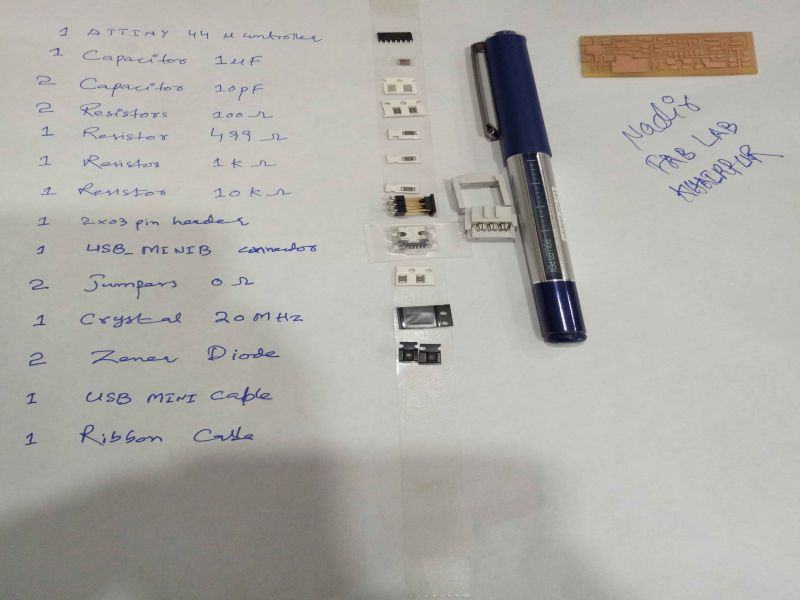 1 ATTINY 44 µ controller
1 Capacitor 1uF
2 Capacitor 10pF
2 Resistors 100 Ω
1 Resistor 499 Ω
1 Resistor 1k Ω
1 Resistor 10k Ω
1 2x03 pin header
1 USB_MINIB connector
2 Jumpers 0 Ω
1 Crystal 20 MHz
2 Zener Diode
1 USB MINI Cable
1 Ribbon Cable
Nadir
FAB LAB
KHAIRPUR